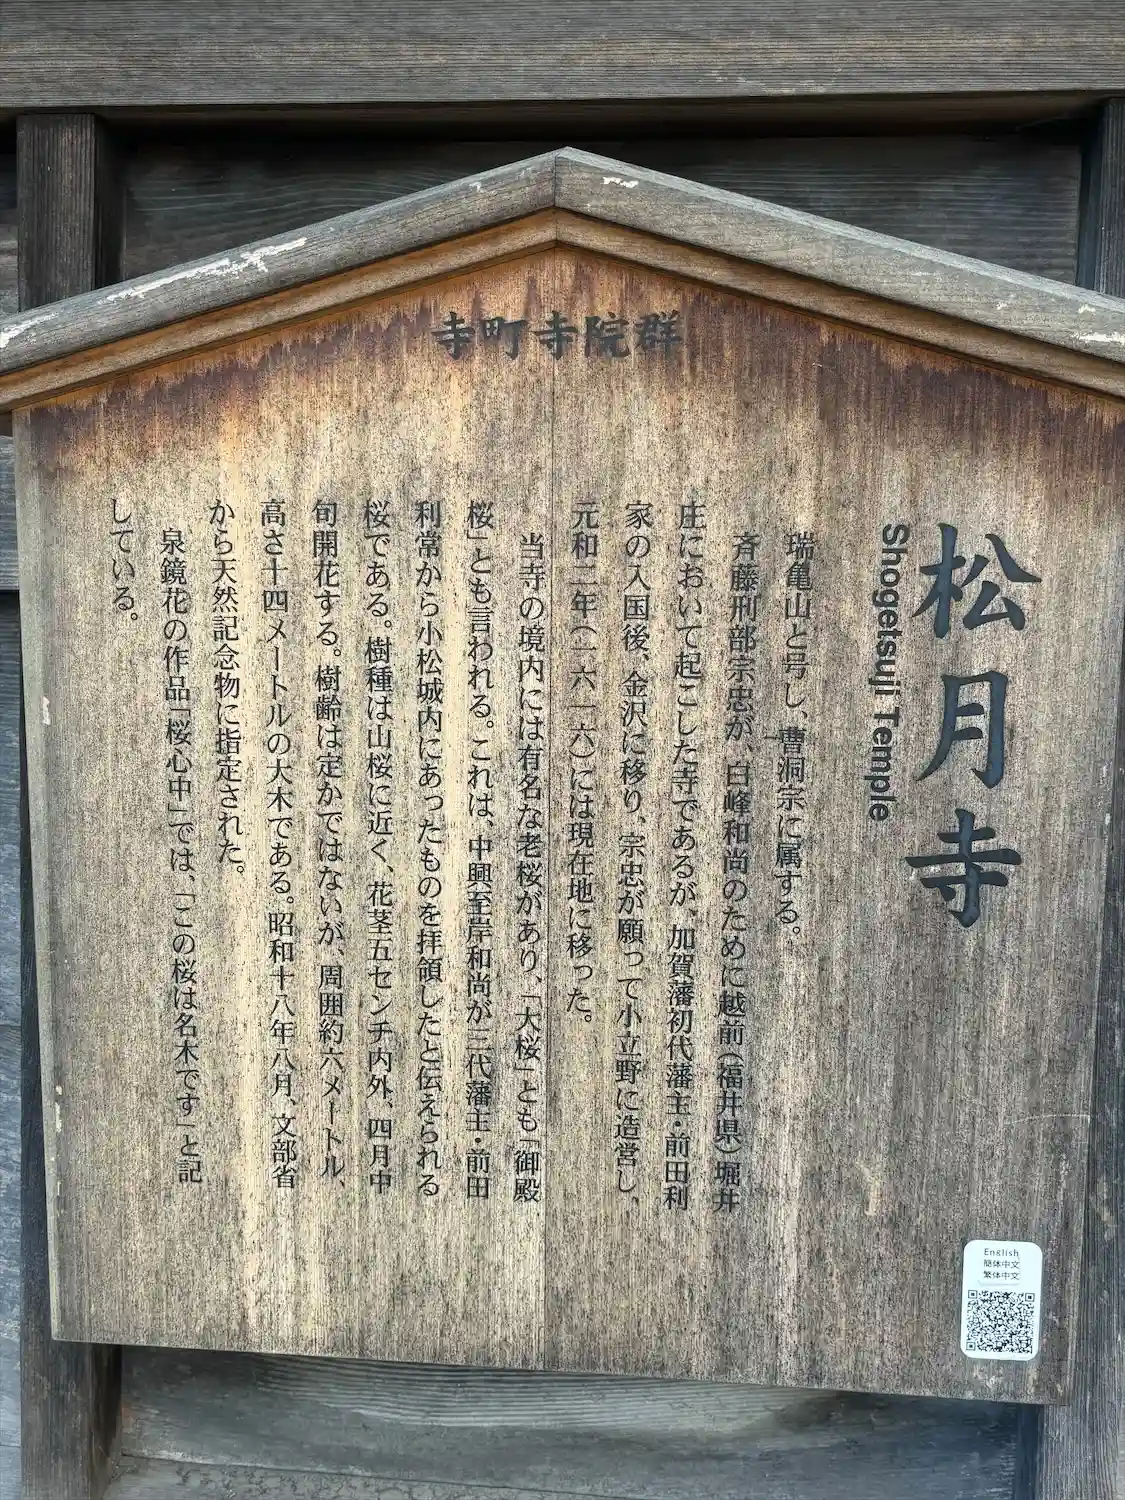 寺町寺院群
松月寺
Shogetsuji Temple
瑞亀山と号し、曹洞宗に属する。
斉藤刑部宗忠が、白峰和尚のために越前(福井県)堀井
庄において起こした寺であるが、加賀藩初代藩主・前田利
家の入国後、金沢に移り、宗忠が願って小立野に造営し、
元和二年(一六一六)には現在地に移った。
当寺の境内には有名な老桜があり、「大桜」とも「御殿
桜」とも言われる。これは、中興至岸和尚が三代藩主・前田
利常から小松城内にあったものを拝領したと伝えられる
桜である。樹種は山桜に近く、花茎五センチ内外、四月中
旬開花する。樹齢は定かではないが、周囲約六メートル、
高さ十四メートルの大木である。昭和十八年八月、文部省
から天然記念物に指定された。
泉鏡花の作品「桜心中」では、「この桜は名木です」と記
している。
English
簡体中文
繁体中文